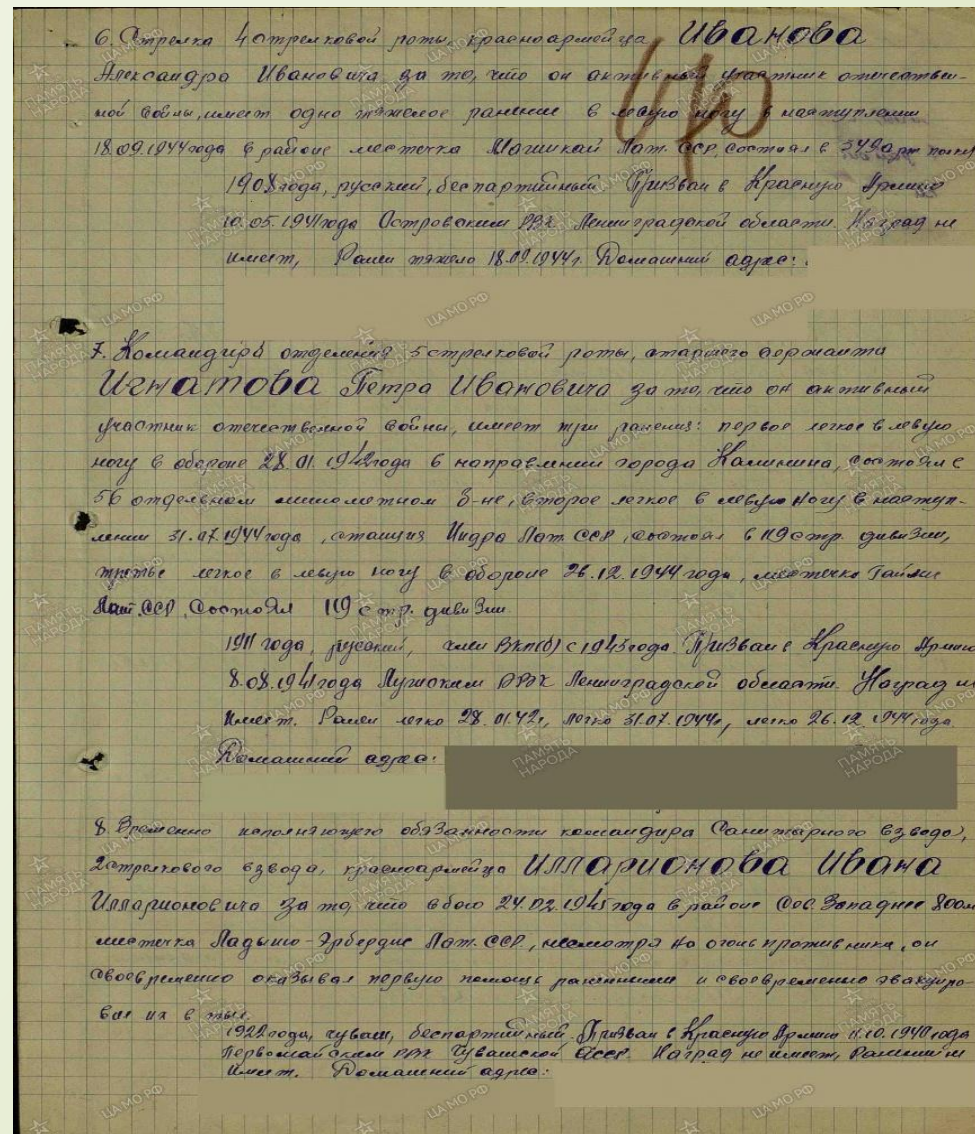 6. Стрелка 4 стрелковой роты, красноармейца Иванова
Александра Ивановича за то, что он активный участник отечествен-
ной войны, имеет одно тяжелое ранение в левую ногу в наступлении
18.09.1944 года в районе местечка Лат. ССР, состоял в
1908 года, русский, беспартийный. Призван в Красную Армию
10.05.1941 года Островским РВК Ленинградской области. Наград не
имеет, Ранен тяжело 18.09.1944 г. Домашний адрес:
7. Командира отделения 5 стрелковой роты, старшего сержанта
Игнатова Петра Ивановича за то, что он активный
участник отечественной войны, имеет три ранения: первое легкое в левую
ногу в обороне 28.01.1942 года в направлении города Калинина, состоял в
56 отдельном минометном б-не, второе легкое в левую ногу в наступ-
лении 31.07.1944 года, станция Индра Лат. ССР, состоял в 119 стр. дивизии,
третье легкое в левую ногу в обороне 26.12.1944 года, местечко
Лат. ССР, Состоял 119 стр. дивизии.
1911 года, русский, член ВКП(б) с 1943 года. Призван в Красную Армию
8.08.1941 года Лужским РВК Ленинградской области. Наград не
имеет. Ранен легко 28.01.42 г, легко 31.07.1944 г, легко 26.12.1944 года
Домашний адрес:
8. Временно исполняющего обязанности командира Санитарного взвода,
2 стрелкового взвода, красноармейца Илларионова Ивана
Илларионовича за то, что в бою 24.02.1945 года в районе Западнее 800 м
местечка Лат. ССР, несмотря на огонь противника, он
своевременно оказывал первую помощь раненным и своевременно эвакуиро-
вал их в тыл.
1922 года, чуваш, беспартийный. Призван в Красную Армию 11.10.1940 года
Первомайским РВК Чувашской АССР. Наград не имеет, Ранений не
имеет. Домашний адрес: